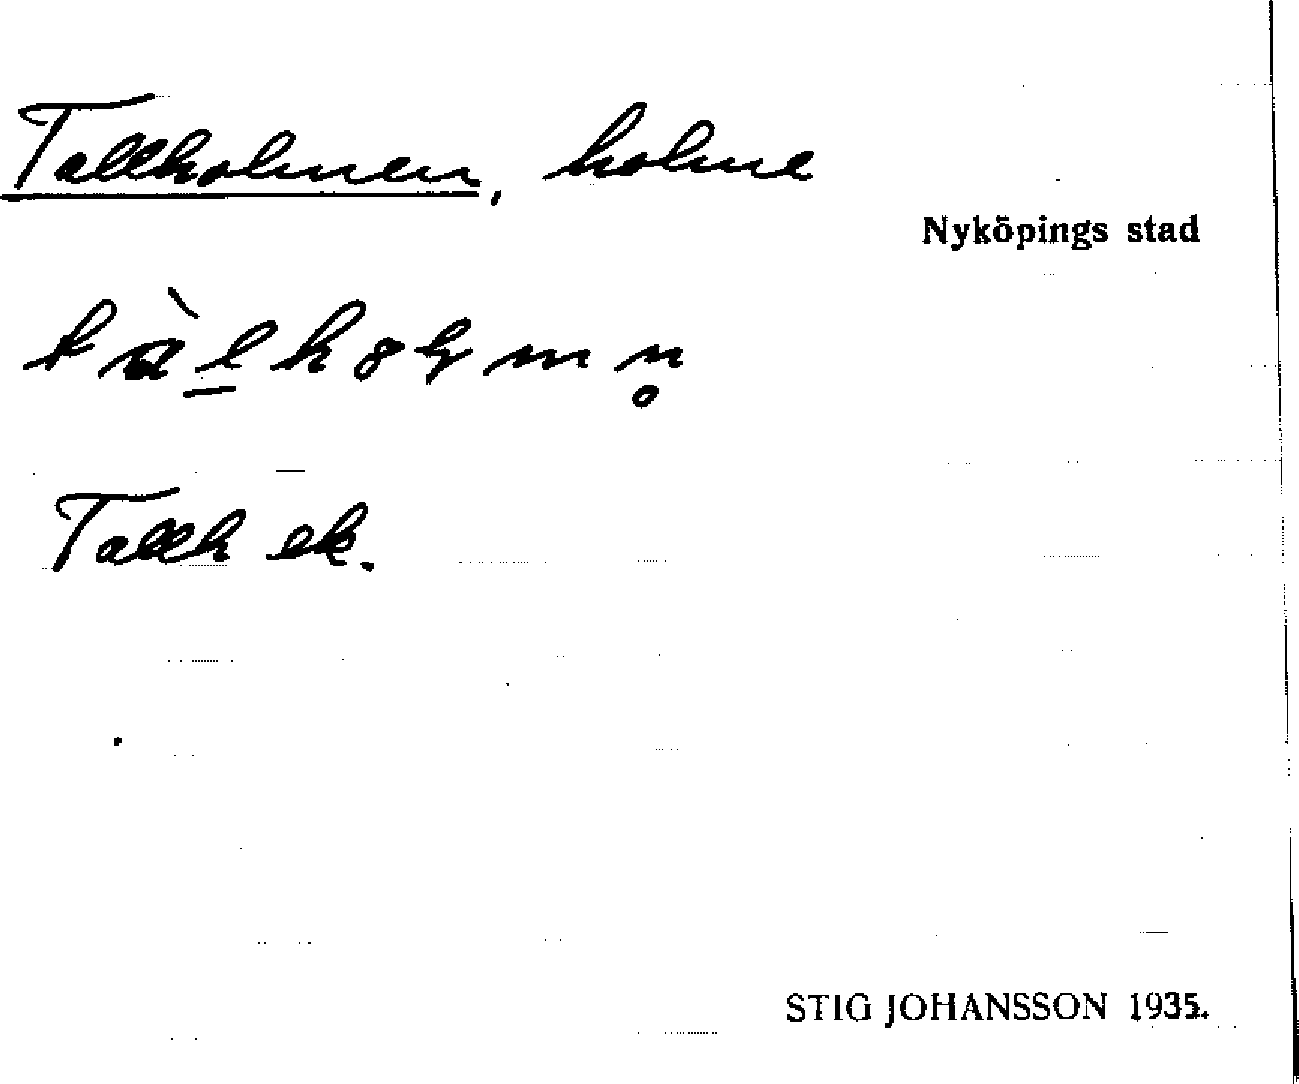 Tallholmen, holme
Nyköpings stad
Tallh ek.
STIG JOHANSSON 1935.